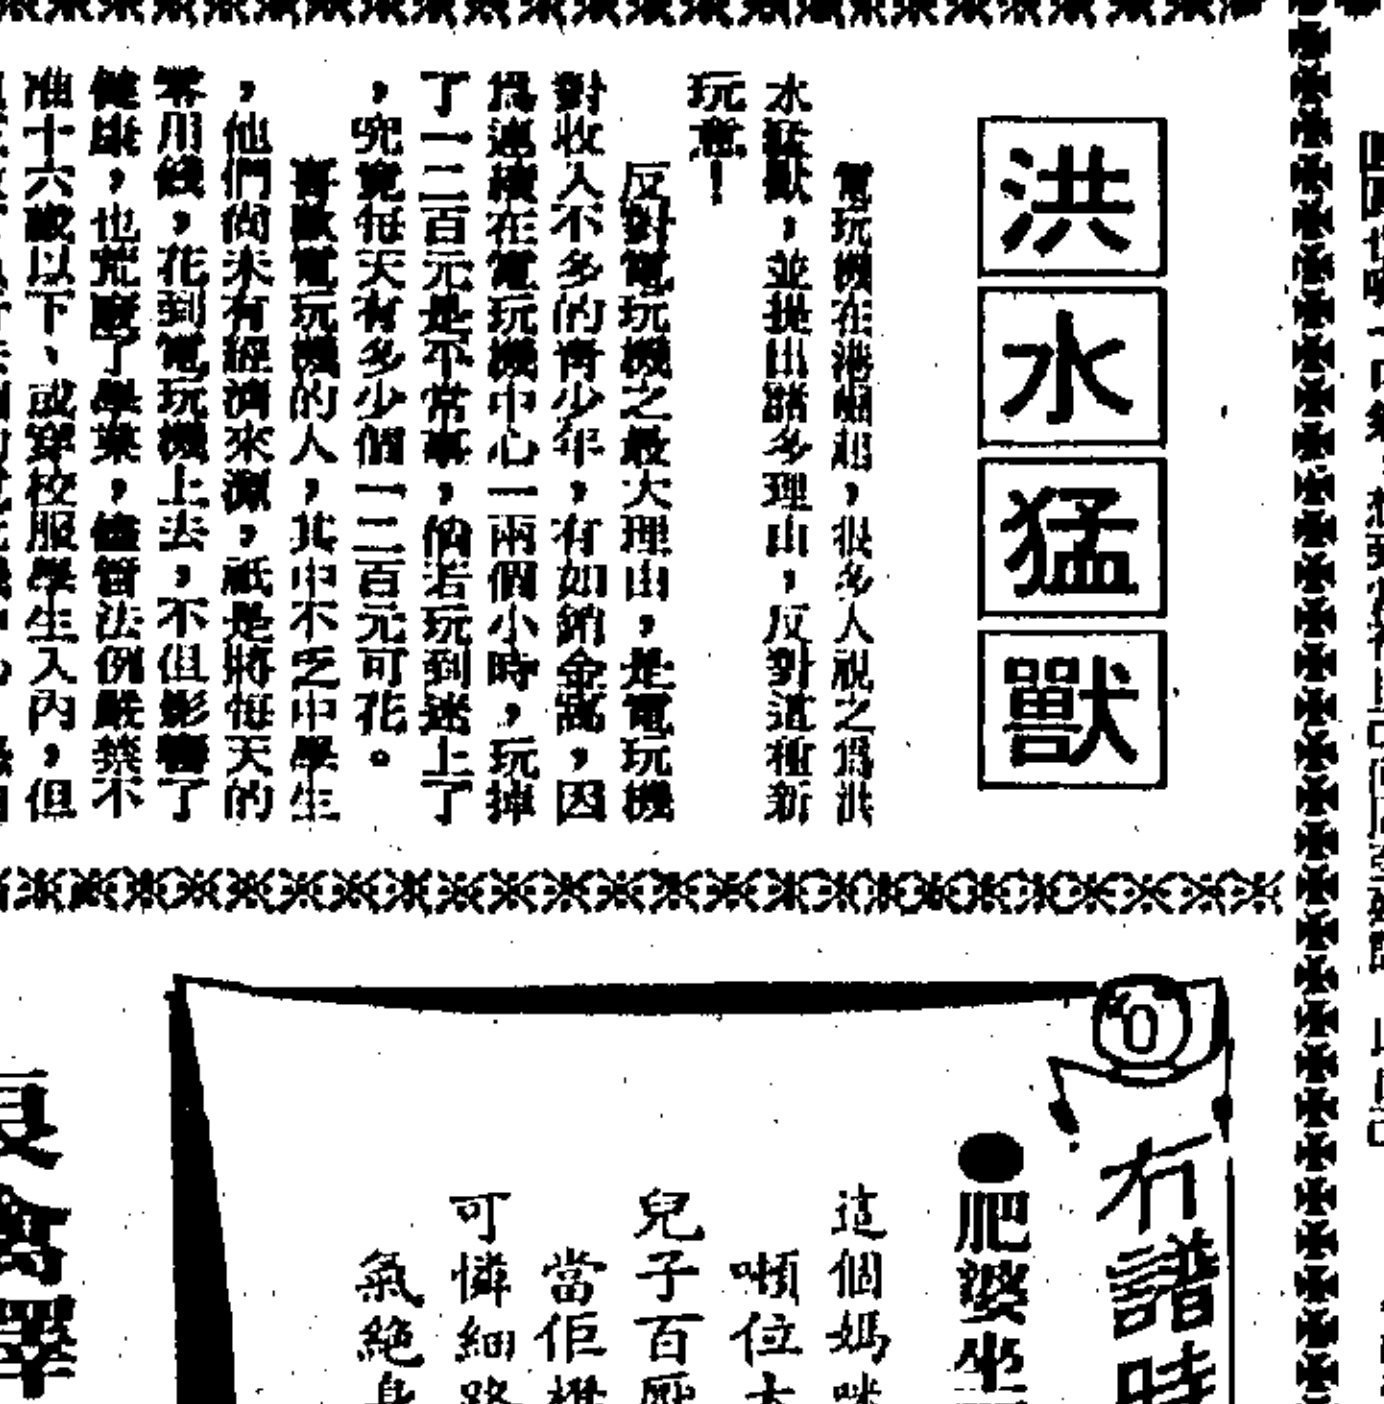 洪水猛獸
電玩機在港崛起，很多人視之爲洪
水猛獸，並提出諸多理由，反對這種新
玩意！
反對電玩機之最大理由，是電玩機
對收入不多的青少年，有如銷金窩，因
爲連續在電玩機中心一兩個小時，玩掉
了一二百元是不常事，倘若玩到迷上了
，究竟每天有多少個一二百元可花。
喜歡電玩機的人，其中不乏中學生
，他們尚未有經濟來源，祗是將每天的
零用錢，花到電玩機上去，不但影響了
健康，也荒廢了學業，儘管法例嚴禁不
准十六歲以下、或穿校服學生入內，但
冇譜時
●肥婆坐
這個媽咪
嚫位太
兒子百厭
當佢櫈
可憐細路
氣絕身